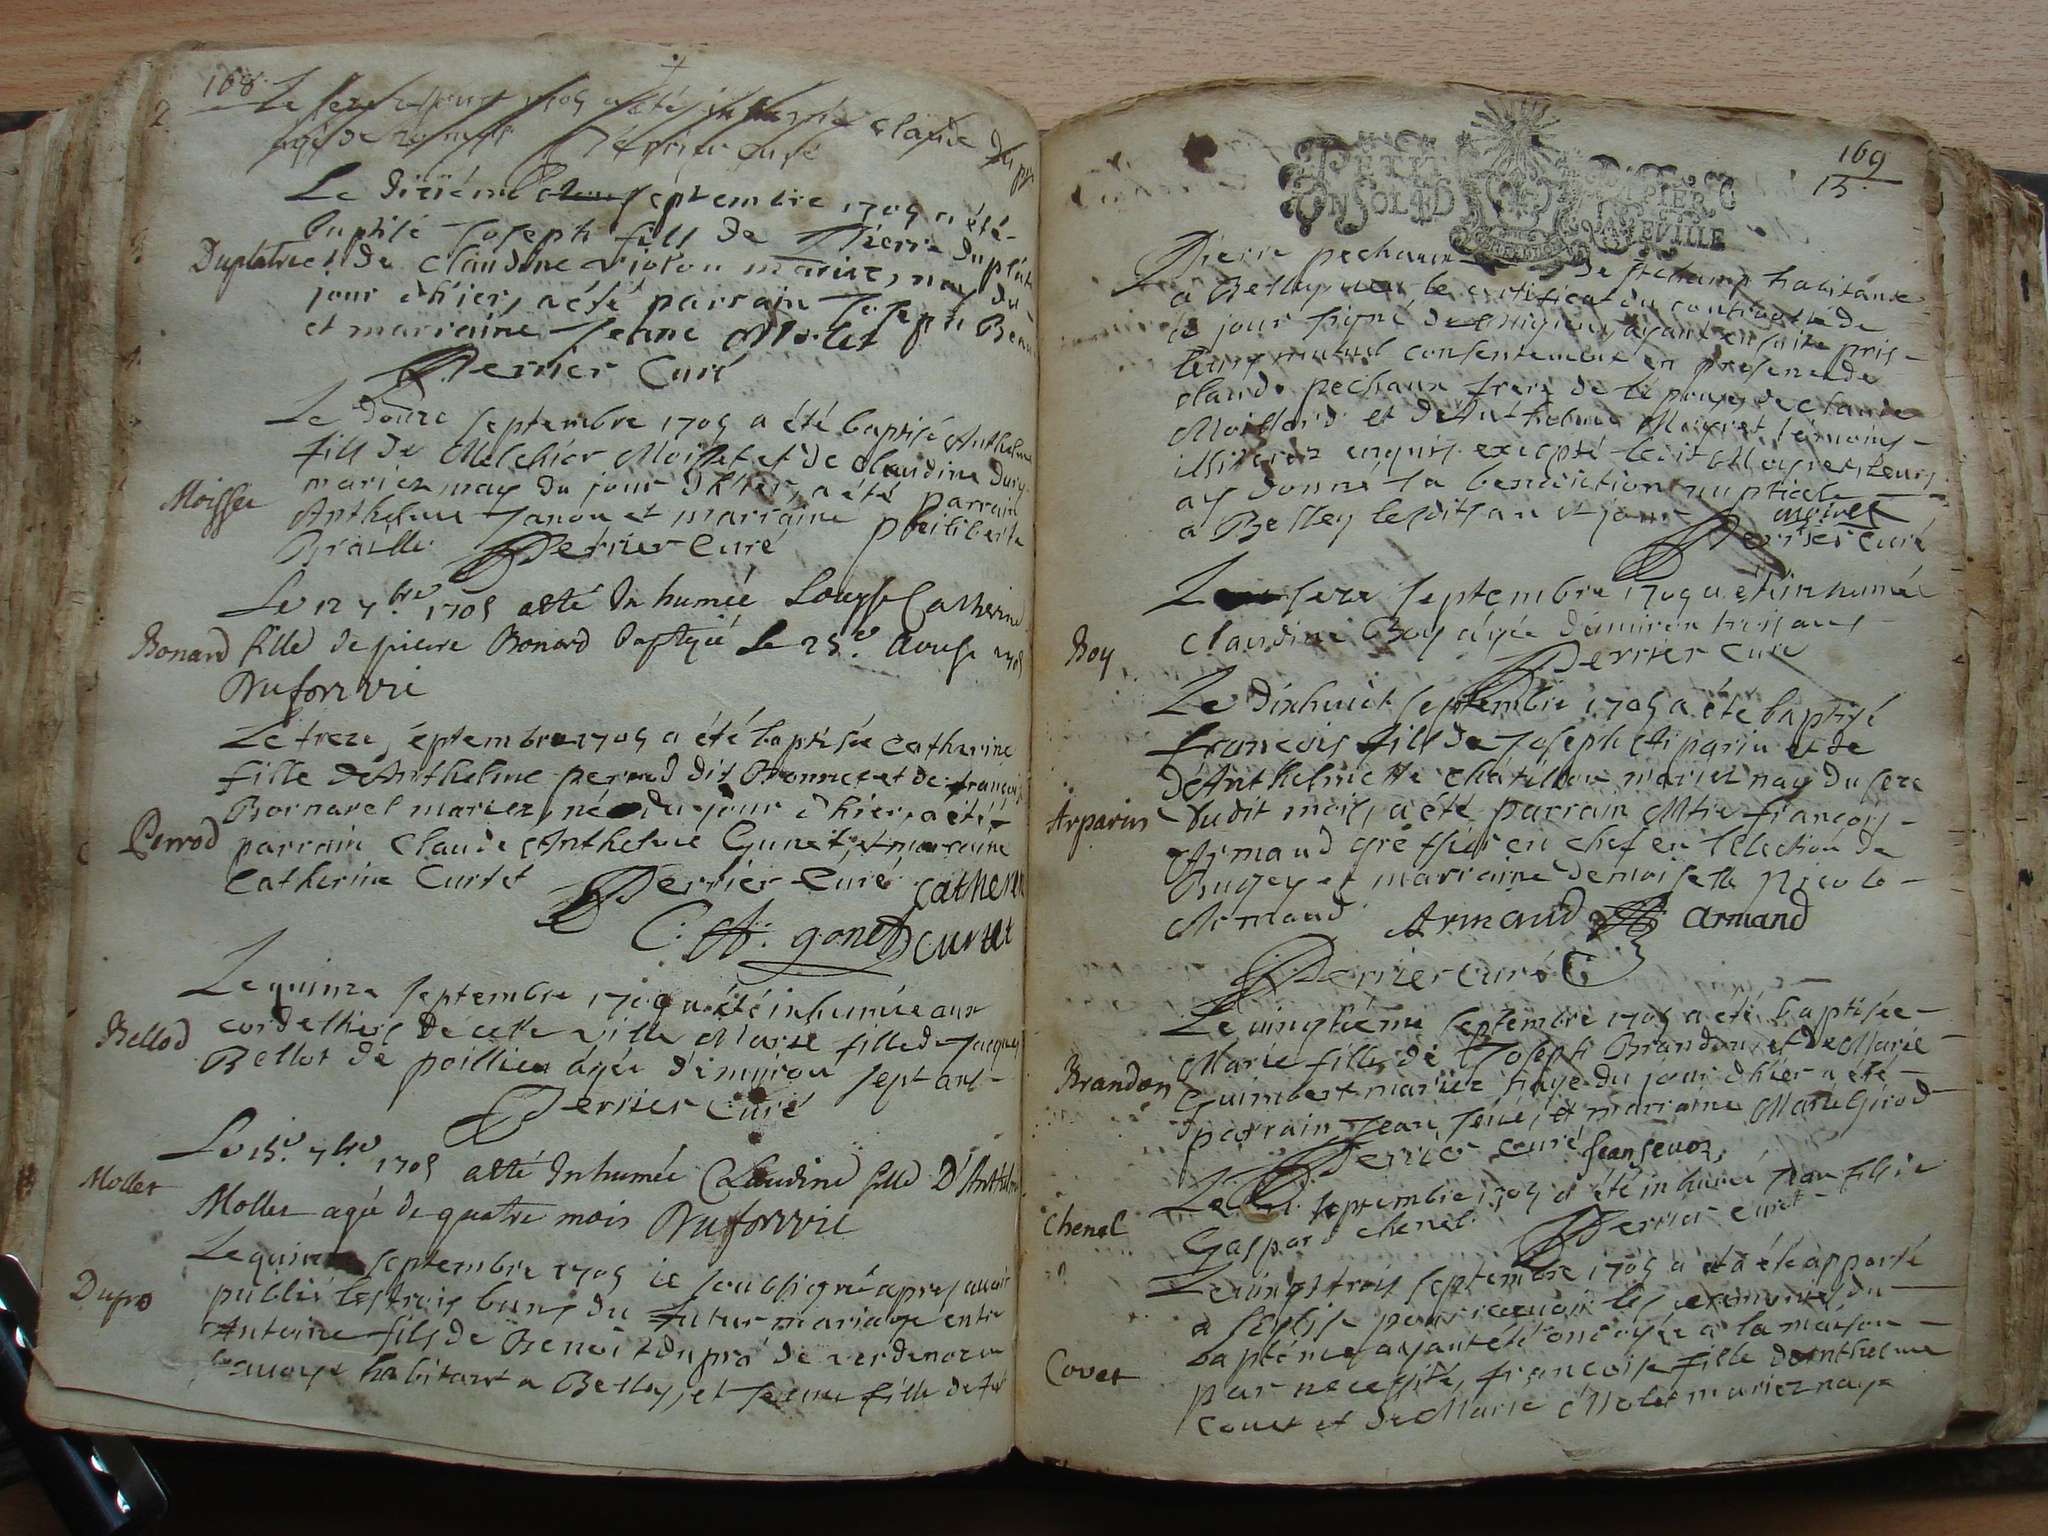 168
Le seze aoust 1705 a été inhumé claude
agé de Perrier curé
Le dixiéme septembre 1705 a été
baptisé Joseph fils de Pierre duplâtre
Duplatre et de Claudine violon mariez, nay du
jour d'hier, a été parrain Joseph Beau
et marraine Jeane Molet
Perrier Curé
Le douze septembre 1705 a été baptisé Anthelme
fils de Melchior Moisset et de Claudine
Moisset mariez nay du jour d'hier, a été parrain
Anthelme Janon et marraine philiberte
Braille Perrier Curé
Le 12 7.bre 1705 a esté Inhumée Louyse Catherine
Bonard fille de pierre Bonard Le 25.e aoust 1705
Le treze septembre 1705 a été baptisée Catherine
fille d'Anthelme perrod dit et de françoise
Bornarel mariez, née du jour d'hier, a été
Perrod parrain Claude Anthelme Gunet, et marraine
Catherine Curtet Perrier Curé Catherin
C: A: gonet Curtet
Le quinze septembre 1705 a été inhumée aux
Bellod cordelhiers de cette ville Marie fille de Jacques
Bellot de poillieu agée d'environ sept ans
Perrier Curé
Le 15.e 7.bre 1705 a esté Inhumée Claudine fille D'Anthelme
Mollet Mollet agé de quatre mois
Le quinze septembre 1705 ie soubsigné apres avoir
Dupro publié les trois bans du futur mariage entre
Antoine fils de Benoit dupró de
habitant a Belley, et Jeanne fille de feu
169
15.
PETIT PAPIER
UN SOL 4 D LA FEVILLE
Pierre pechaux de habitante
a Belley veu le certificat du controolle de
ce jour signé de ayant ensuite pris
leurs mutuel consentement en presence de
claude pechaux frere de l'épouse, de claude
Moillard et d'Anthelme Meyret témoins
illiterez enquis excepté ledit Meyret, leurs
ay donné la benediction nuptiale
a Belley lesdits an et jour meyret
Perrier curé
Le seze septembre 1705 a été inhumée
Roy claudine Roy agée d'environ trois ans
Perrier Curé
Le dixhuict septembre 1705 a été baptisé
francois fils de Joseph Arparin et de
d'Anthelmette chatillon mariez nay du seze
Arparin dudit mois, a été parrain Mtre françois
Armand greffier en chef en l'election de
Bugey et marraine demoiselle Nicole
Armand Armand Armand
Perrier curé
Le vingtiéme septembre 1705 a été baptisée
Marie fille de Joseph Brandon et de Marie
Brandon Guimbert mariez naye du jour d'hier a été
parrain Jean et marraine Marie Girod
Perrier curé
Le septembre 1705 a été inhumé Jean fils de
Chenel Gaspard chenel Perrier curé
Le vingt trois septembre 1705 a été apporté
a l'eglise pour recevoir les ceremonies du
baptéme ayant eté ondoyée a la maison
Covet par necessité, françoise fille d'Anthelme
Couet et de Marie Molet mariez naye